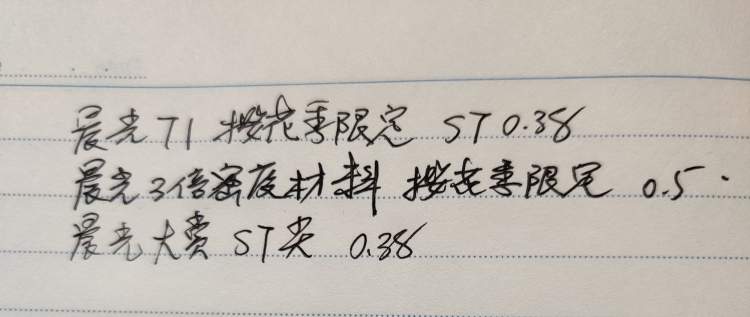 晨光 T1 樱花季限定 ST 0.38
晨光3倍密度材料 樱花季限定 0.5
晨光大赏 ST尖 0.38